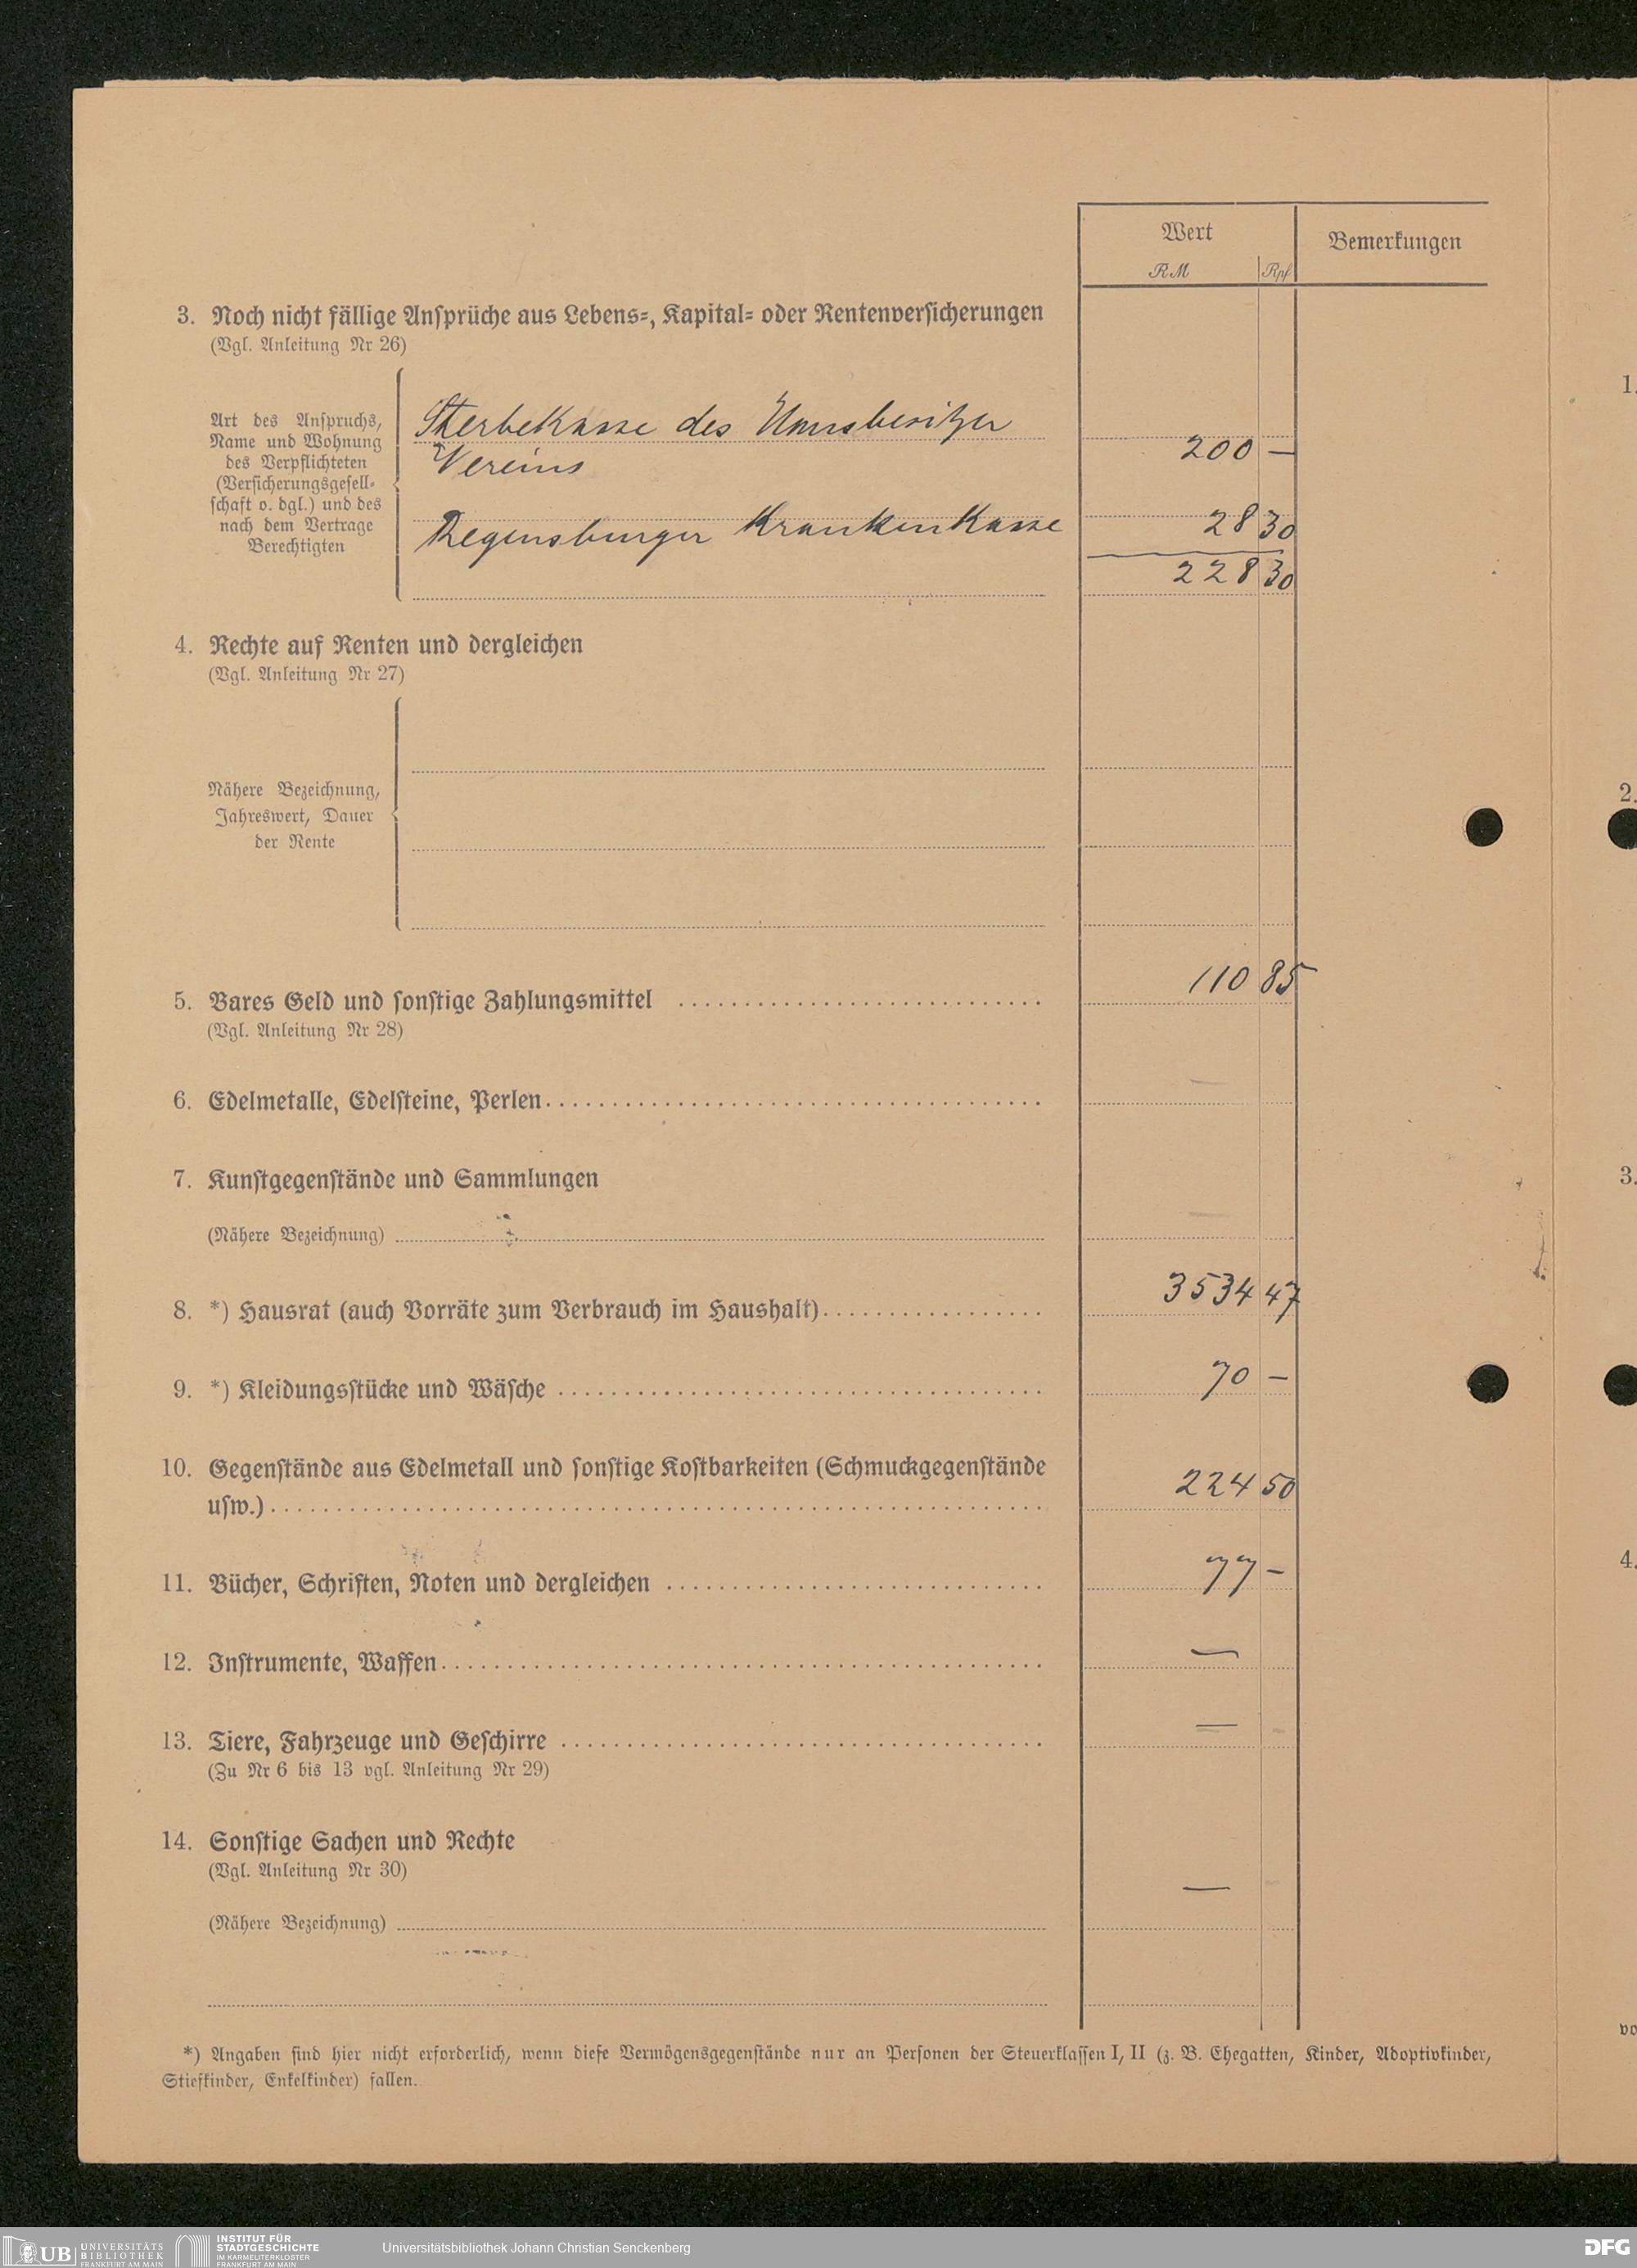 Wert
Bemerkungen
RM Rpf
3. Noch nicht fällige Ansprüche aus Lebens-, Kapital- oder Rentenversicherungen
(Vgl. Anleitung Nr 26)
Art des Anspruchs,
Name und Wohnung
des Verpflichteten
(Versicherungsgesell-
schaft o. dgl.) und des
nach dem Vertrage
Berechtigten
Sterbekasse des Hausbesitzer
Vereins 200 —
Regensburger Krankenkasse 28 30
228 30
4. Rechte auf Renten und dergleichen
(Vgl. Anleitung Nr 27)
Nähere Bezeichnung,
Jahreswert, Dauer
der Rente
5. Bares Geld und sonstige Zahlungsmittel 110 85
(Vgl. Anleitung Nr 28)
6. Edelmetalle, Edelsteine, Perlen —
7. Kunstgegenstände und Sammlungen
(Nähere Bezeichnung) —
8. *) Hausrat (auch Vorräte zum Verbrauch im Haushalt) 3534 47
9. *) Kleidungsstücke und Wäsche 70 —
10. Gegenstände aus Edelmetall und sonstige Kostbarkeiten (Schmuckgegenstände
usw.) 224 50
11. Bücher, Schriften, Noten und dergleichen 77 —
12. Instrumente, Waffen —
13. Tiere, Fahrzeuge und Geschirre —
(Zu Nr 6 bis 13 vgl. Anleitung Nr 29)
14. Sonstige Sachen und Rechte
(Vgl. Anleitung Nr 30)
(Nähere Bezeichnung) —
*) Angaben sind hier nicht erforderlich, wenn diese Vermögensgegenstände nur an Personen der Steuerklassen I, II (z. B. Ehegatten, Kinder, Adoptivkinder,
Stiefkinder, Enkelkinder) fallen.
1.
2.
3.
4.
vo
UB UNIVERSITÄTS
BIBLIOTHEK
FRANKFURT AM MAIN
INSTITUT FÜR
STADTGESCHICHTE
IM KARMELITERKLOSTER
FRANKFURT AM MAIN
Universitätsbibliothek Johann Christian Senckenberg
DFG